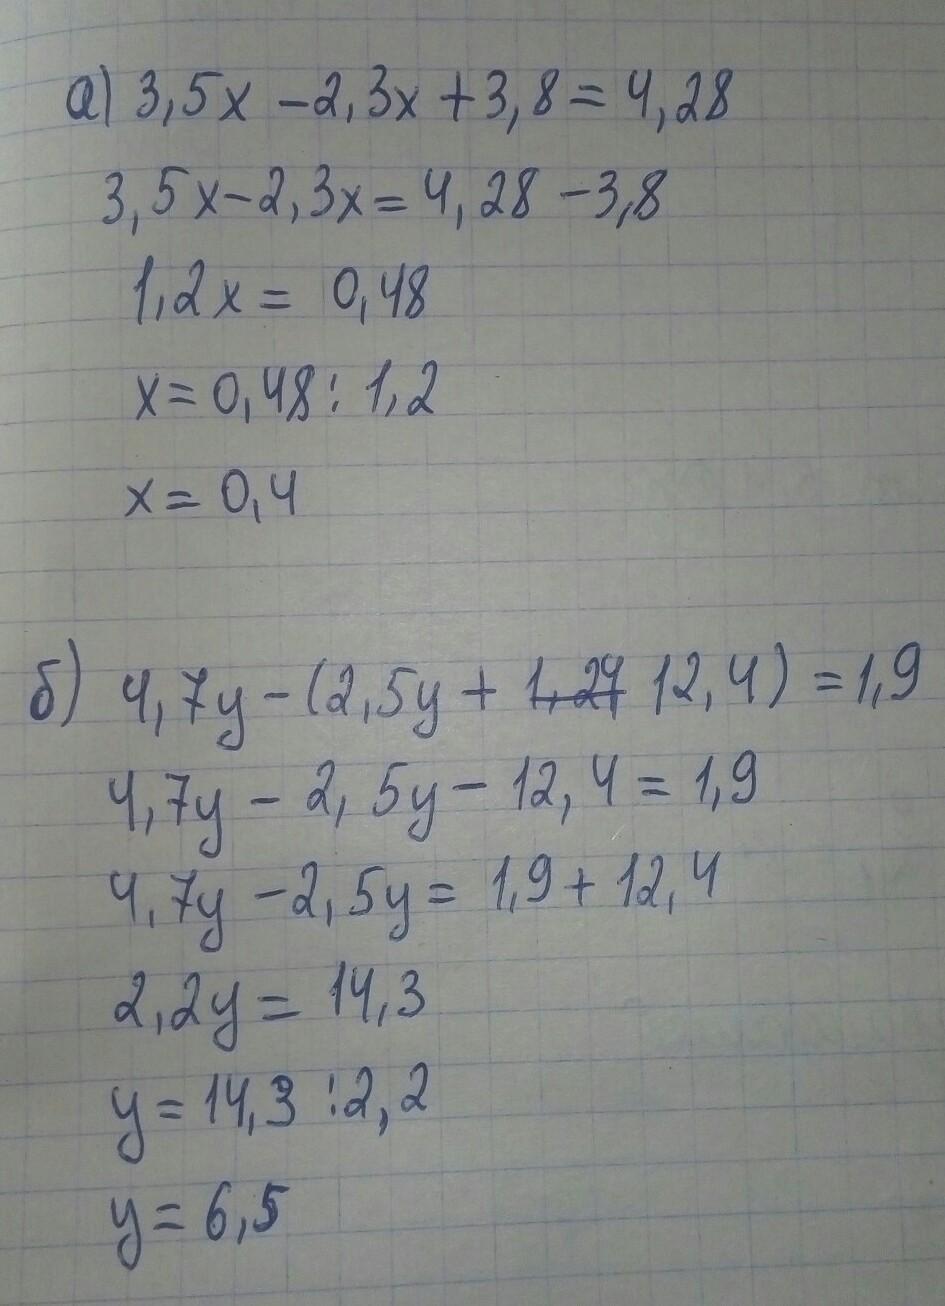 а) 3,5x - 2,3x + 3,8 = 4,28
3,5x - 2,3x = 4,28 - 3,8
1,2x = 0,48
x = 0,48 : 1,2
x = 0,4
б) 4,7y - (2,5y + 1,24 12,4) = 1,9
4,7y - 2,5y - 12,4 = 1,9
4,7y - 2,5y = 1,9 + 12,4
2,2y = 14,3
y = 14,3 : 2,2
y = 6,5